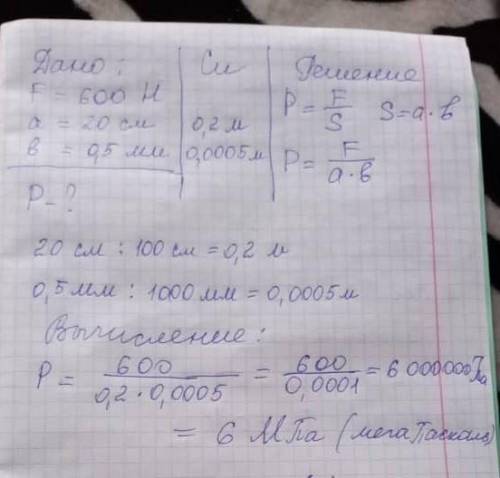 Дано: Си Решение
F = 600 Н P = F/S S = a · в
a = 20 см 0,2 м
в = 0,5 мм 0,0005 м P = F/a · в
P - ?
20 см : 100 см = 0,2 м
0,5 мм : 1000 мм = 0,0005 м
Вычисление:
P = 600/0,2 · 0,0005 = 600/0,0001 = 6 000 000 Па
= 6 МПа (мегаПаскаль)